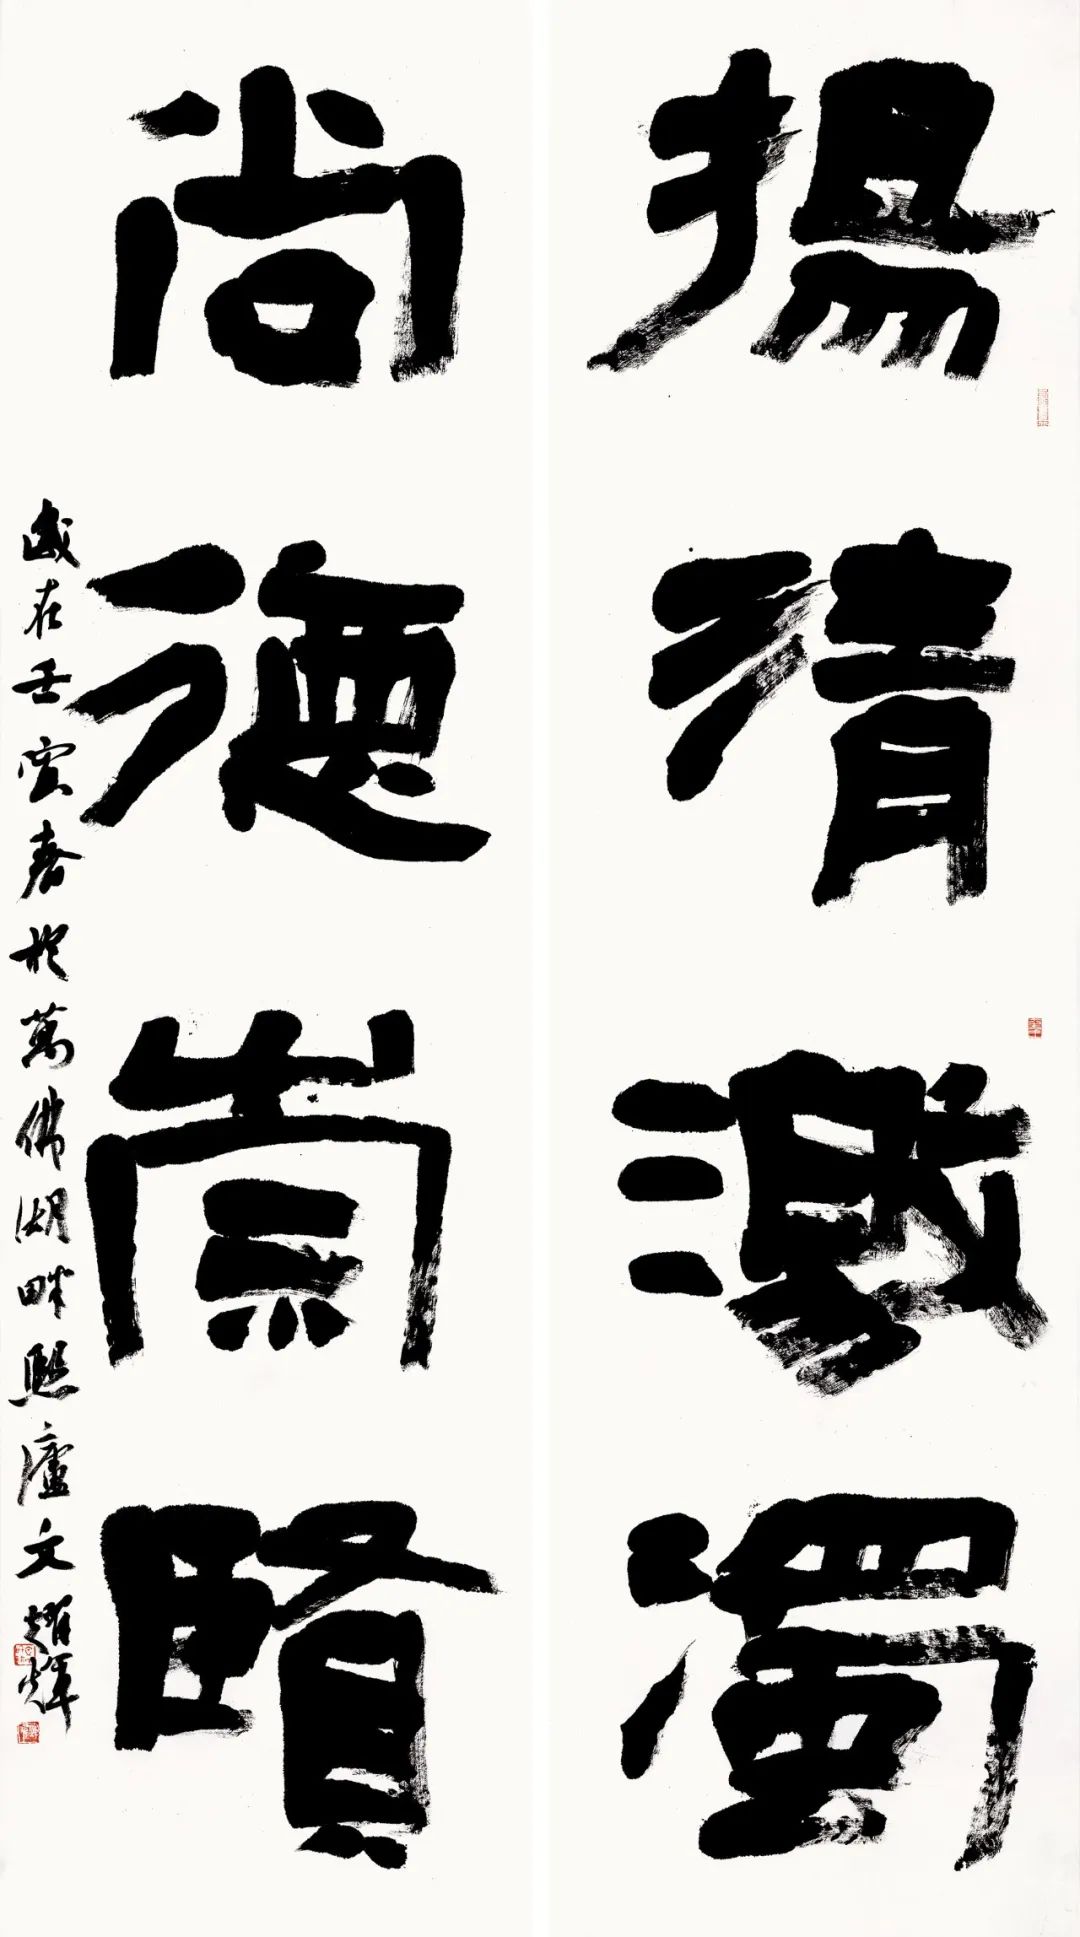 揚清激濁
尚德崇賢
歲在壬寅春於萬佛湖畔熙廬文耀輝